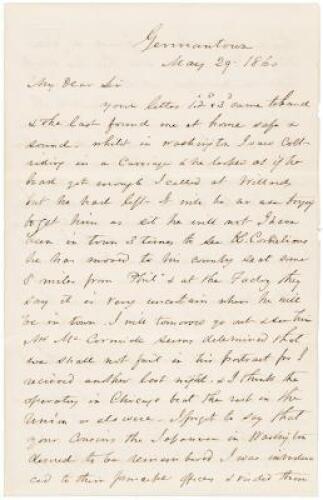 Germantown
May 29 - 1860
My Dear Sir
your letters 1. 2d & 3d came to hand
& the last found me at home safe &
sound. whilst in Washington I saw Colt
riding in a Carriage & he looked as if he
had got enough I called at Willards
but he had left. it will be no use trying
to get him as sit he will not I have
been in town 3 times to see H. Cornelious
he has moved to his country seat some
8 miles from Phil'a & at the Factory they
say it is very uncertain when he will
be in town. I will tomorrow go out & see him
Mr McCormick seems determined that
we shall not fail in his Portrait for I
recieved another last night, & I think the
operators in Chicago beat the rest in the
Union or elsewere. I forgot to say that
your Cousins the Japanese in Washington
desired to be remembered I was introdu
ced to their principle officers & traded them